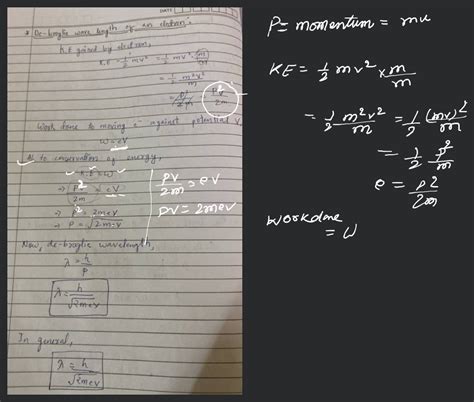 DATE
* De-broglie wave length of an electron:
K.E gained by electron,
K.E = 1/2 mv² = 1/2 mv² × m/m
= 1/2 m²v²/m
= p²/2m
PV/2m
Work done to moving e⁻ against potential V
W = eV
As to conservation of energy,
K.E = W
⇒ P²/2m = eV
⇒ P² = 2meV
⇒ P = √2meV
PV/2m = eV
PV = 2meV
Now, de-broglie wavelength,
λ = h/P
λ = h/√2meV
In general,
λ = h/√2meV
P = momentum = mv
KE = 1/2 mv² × m/m
= 1/2 m²v²/m = 1/2 (mv)²/m
= 1/2 p²/m
e = p2/2m
Workdone
= W